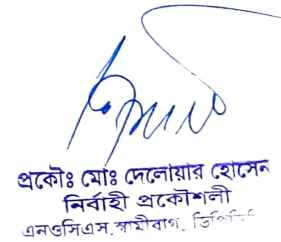 প্রকৌঃ মোঃ দেলোয়ার হোসেন
নির্বাহী প্রকৌশলী
এনওসিএস, স্বামীবাগ,